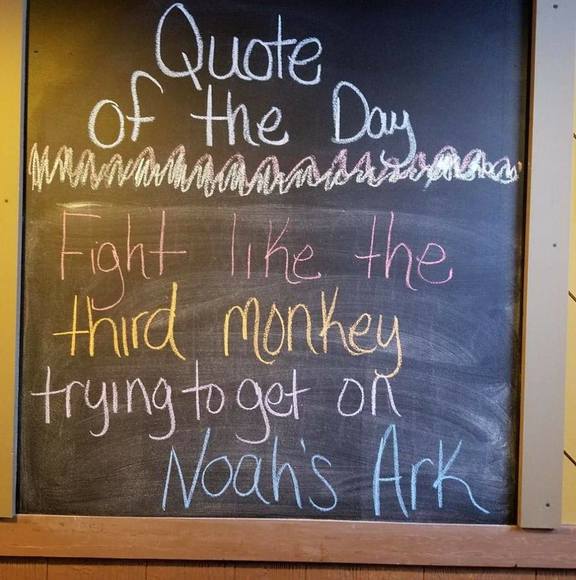 Quote
of the Day
Fight like the
third monkey
trying to get on
Noah's Ark